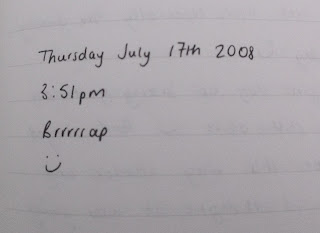 Thursday July 17th 2008
3:51pm
Brrrrrap